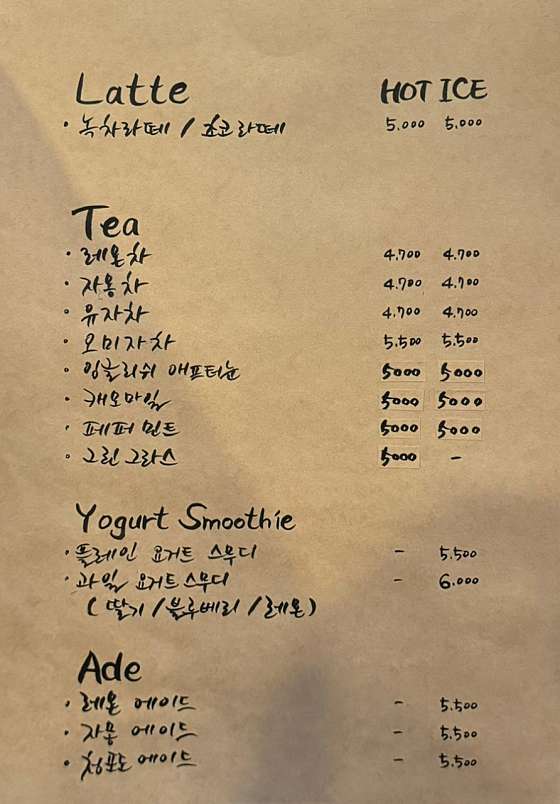 Latte HOT ICE
· 녹차라떼 / 쵸코라떼 5.000 5.000
Tea
· 레몬차 4.700 4.700
· 자몽차 4.700 4.700
· 유자차 4.700 4.700
· 오미자차 5.500 5.500
· 잉글리쉬 애프터눈 5000 5000
· 캐모마일 5000 5000
· 페퍼민트 5000 5000
· 그린그라스 5000 -
Yogurt Smoothie
· 플레인 요거트 스무디 - 5.500
· 과일 요거트 스무디 - 6.000
( 딸기 / 블루베리 / 레몬 )
Ade
· 레몬 에이드 - 5.500
· 자몽 에이드 - 5.500
· 청포도 에이드 - 5.500